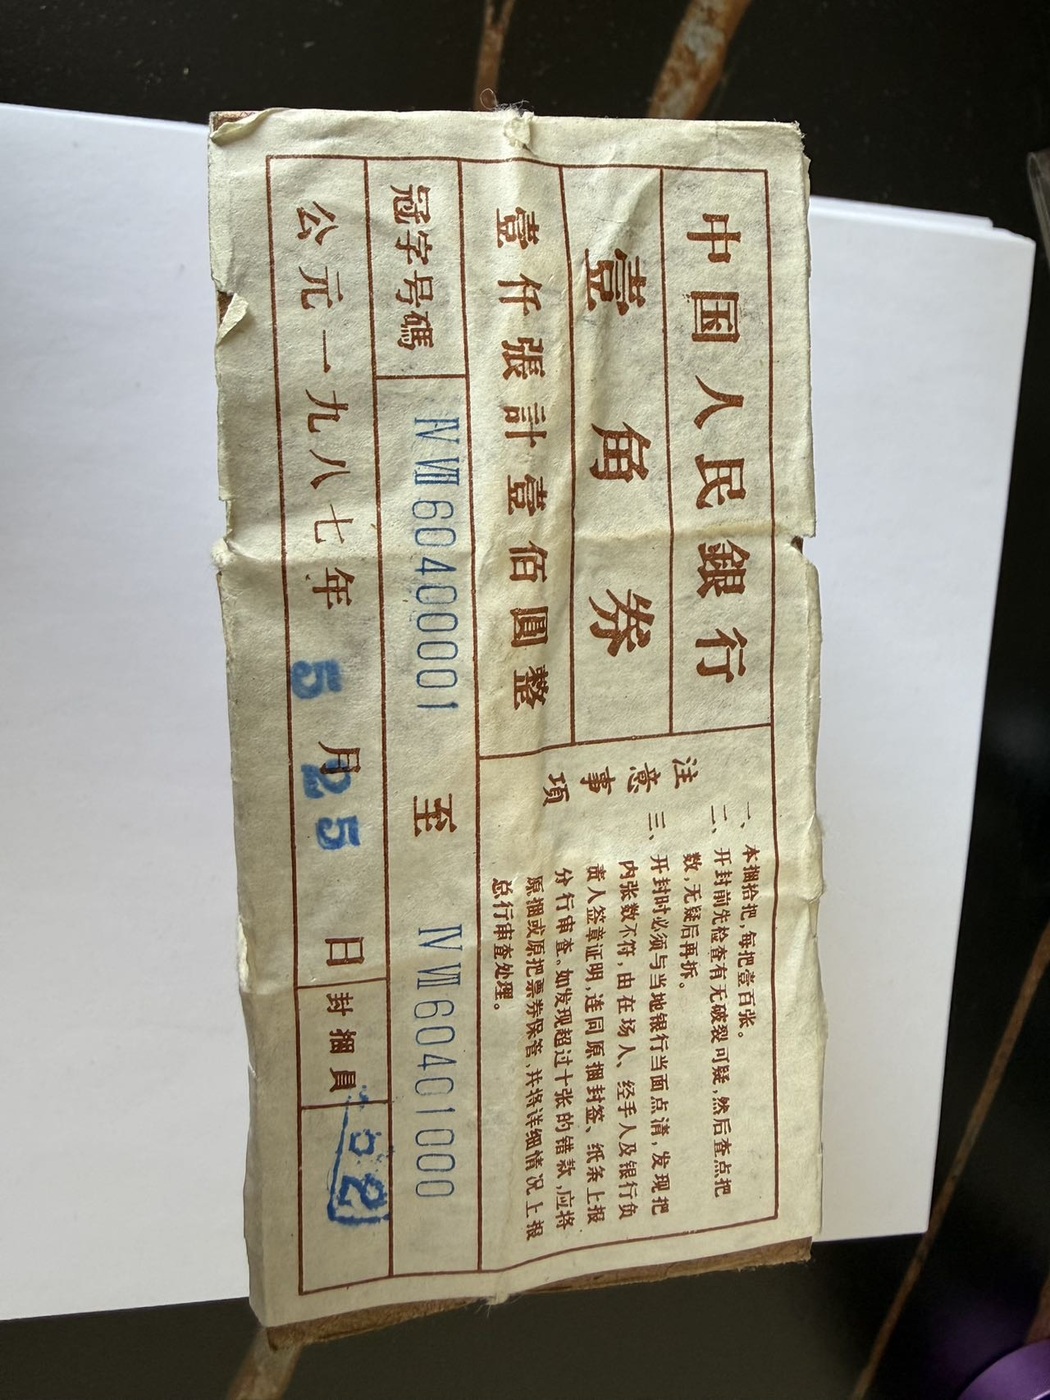 中国人民銀行
壹角券
壹仟張計壹佰圓整
注意事項
一、本捆拾把,每把壹百张。
二、开封前先检查有无破裂可疑,然后查点把
数,无疑后再拆。
三、开封时必须与当地银行当面点清,发现把
内张数不符,由在场人、经手人及银行负
责人签章证明,连同原捆封签、纸条上报
分行审查。如发现超过十张的错款,应将
原捆或原把票券保管,并将详细情况上报
总行审查处理。
冠字号碼 ⅣⅦ60400001 至 ⅣⅦ60401000
公元一九八七年5月25日 封捆員